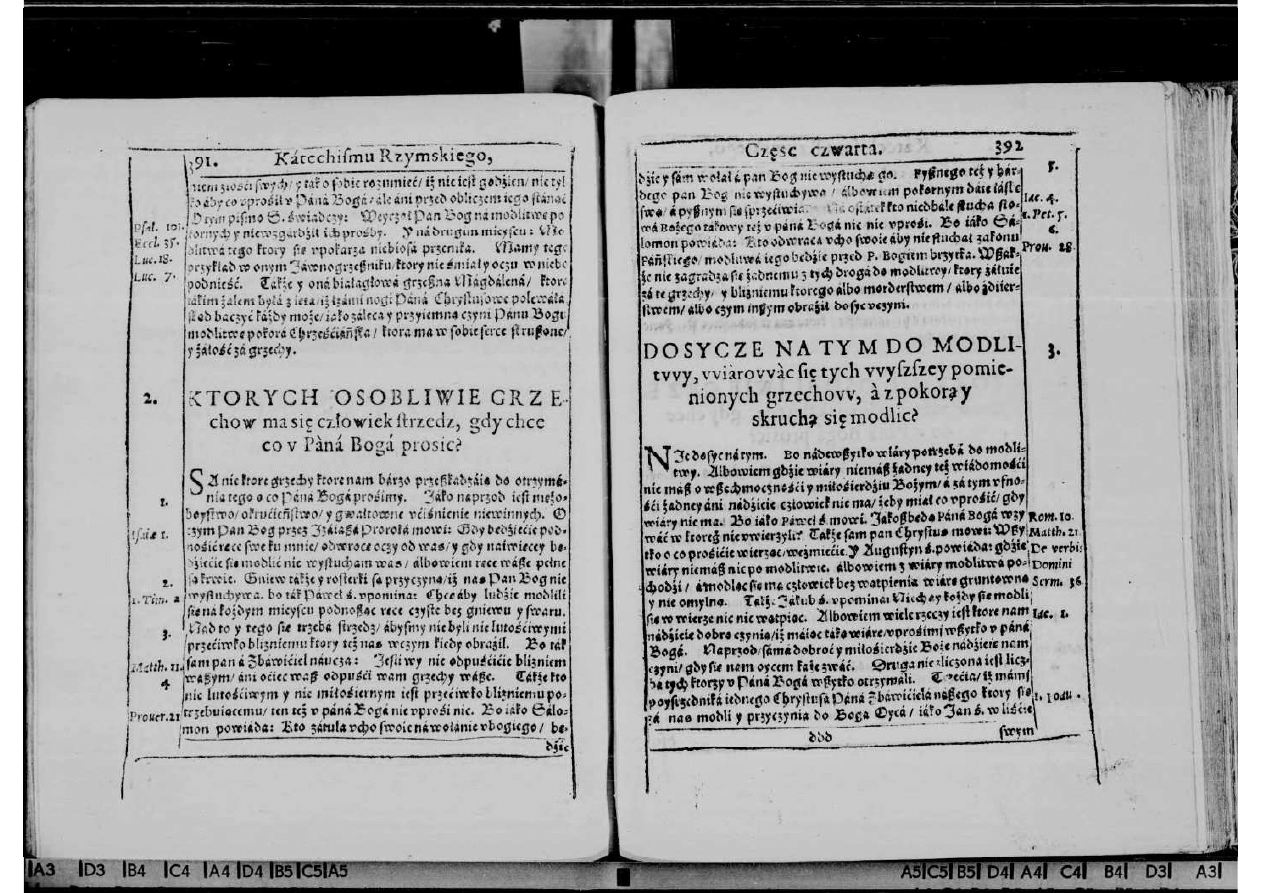 391. Kátechismu Rzymskiego,
niem złości swych/ y táko sobie rozumieć/ iż nie iest godzien/ nie tyl
ko áby co vprośił v Páná Bogá/ ále áni przed obliczem iego stánąć
O tym pismo S. świádczy: Weyrzał Pan Bog ná modlitwę po
kornych y niewzgárdźił ich prośby. Y ná drugim mieyscu: Mo
dlitwá tego ktory się vpokarza niebiosá przenika. Mamy tego
przykład w onym Jáwnogrzeszniku/ ktory nie śmiał y oczu w niebo
podnieść. Tákże y oná białagłowá grzeszna Mágdálená/ ktora
tákim żalem byłá zięta/ iż łzámi nogi Páná Chrystusowe polewáłá
stąd baczyć káżdy może/ iáko záleca y przyiemną czyni Pánu Bogu
modlitwę pokorá Chrześćiáńska/ ktora ma w sobie serce skruszone/
y żáłość zá grzechy.
Psal. 101.
Eccl. 35.
Luc. 18.
Luc. 7.
2.
KTORYCH OSOBLIWIE GRZE-
chow ma się człowiek strzedz, gdy chce
co v Pàná Bogá prosic?
SA nie ktore grzechy ktore nam bárzo przeszkadzáią do otrzymá-
nia tego o co Páná Bogá prośimy. Jáko naprzod iest mężo-
boystwo/ okrućieństwo/ y gwałtowne vćiśnienie niewinnych. O
czym Pan Bog przez Izáiaszá Proroká mowi: Gdy będźiećie pod-
nośić ręce swe ku mnie/ odwrocę oczy od was/ y gdy nawięcey bę-
dźiećie się modlić nie wysłucham was/ álbowiem ręce wásze pełne
są krwie. Gniew tákże y rosterki są przyczyną/ iż nas Pan Bog nie
wysłuchywa. bo ták Páweł ś. vpomina: Chcę áby ludźie modlili
się ná kożdym mieyscu podnosząc ręce czyste bez gniewu y swaru.
Nád to y tego się trzebá strzedz/ ábysmy nie byli nie lutośćiwymi
przećiwko bliźniemu ktory też nas wczym kiedy obráźił. Bo ták
sam pan á Zbáwićiel náucza: Jesli wy nie odpuśćićie bliźniem
wászym/ áni oćiec wász odpuśći wam grzechy wásze. Tákże kto
nie lutośćiwym y nie miłośiernym iest przećiwko bliźniemu po-
trzebuiącemu/ ten też v páná Bogá nie vprośi nic. Bo iáko Sálo-
mon powiáda: Kto zátula vcho swoie ná wołánie vbogiego/ bę-
dźie
1.
Isaiæ 1.
2.
1. Tim. 2
3.
Matth. 11.
4
Prouer. 21
Częsc czwarta. 392
dźie y sam wołał á pan Bog nie wysłucha go. Pysznego też y hár-
dego pan Bog nie wysłuchywa/ álbowiem pokornym dáie łáskę
swą/ á pysznym się sprzećiwia. Ná ostátek kto niedbále słucha sło-
wá Bożego tákowy też v páná Bogá nic nie vprośi. Bo iáko Sá-
lomon powiáda: Kto odwraca vcho swoie áby nie słuchał zakonu
Páńskiego/ modlitwá iego będźie przed P. Bogiem brzytka. Wszák-
że nie zagradza się żadnemu z tych drogá do modlitwy/ ktory żáłuie
zá te grzechy/ y bliźniemu ktorego álbo morderstwem/ álbo zdźier-
stwem/ álbo czym inszym obráźił dosyć vczyni.
5.
Iac. 4.
1. Pet. 5.
6.
Prou. 28.
DOSYCZE NA TYM DO MODLI-
twy, wiàrowàc się tych wyszszey pomie-
nionych grzechow, à z pokorą y
skruchą się modlic?
3.
NIe dosyć ná tym. Bo nádewszytko wiáry potrzebá do modli-
twy. Albowiem gdźie wiáry niemász żadney też wiádomośći
nie mász o wszechmocnośći y miłośierdźiu Bożym/ á zá tym vfno-
śći żadney áni nádźieie człowiek nie ma/ żeby miał co vprośić/ gdy
wiáry nie ma. Bo iáko Páweł ś. mowi. Jákosz będą Páná Bogá wzy
wáć w ktoreg nie vwierzyli? Tákże sam pan Chrystus mowi: Wszy
tko o co prośićie wierząc/ weźmiećie. Y Augustyn ś. powiáda: gdźie
wiáry niemász nic po modlitwie. álbowiem z wiáry modlitwá po-
chodźi/ á modląc się ma człowiek bez wątpienia wiárę gruntowną
y nie omylną. Tákż. Jákub ś. vpomina: Niech ay każdy się modli
się w wierze nic nie wątpiąc. Albowiem wiele rzeczy iest ktore nam
nádźieię dobrą czynią/ iż máiąc táką wiárę/ vprośimy wszytko v páná
Bogá. Naprzod/ sámá dobroć y miłośierdźie Boże nádźieię nam
czyni/ gdy się nam oycem każe zwáć. Druga nie zliczona iest licz-
bá tych ktorzy v Páná Bogá wszytko otrzymáli. Trzećia/ iż mamy
poyśrzedniká iednego Chrystusá Páná Zbáwićielá nászego ktory się
zá nas modli y przyczynia do Bogá Oycá/ iáko Jan ś. w liśćie
ddd swym
Rom. 10.
Matth. 21
De verbis
Domini
Serm. 36
Iac. 1.
1. Ioan.
A3 D3 B4 C4 A4 D4 B5 C5 A5
A5 C5 B5 D4 A4 C4 B4 D3 A3